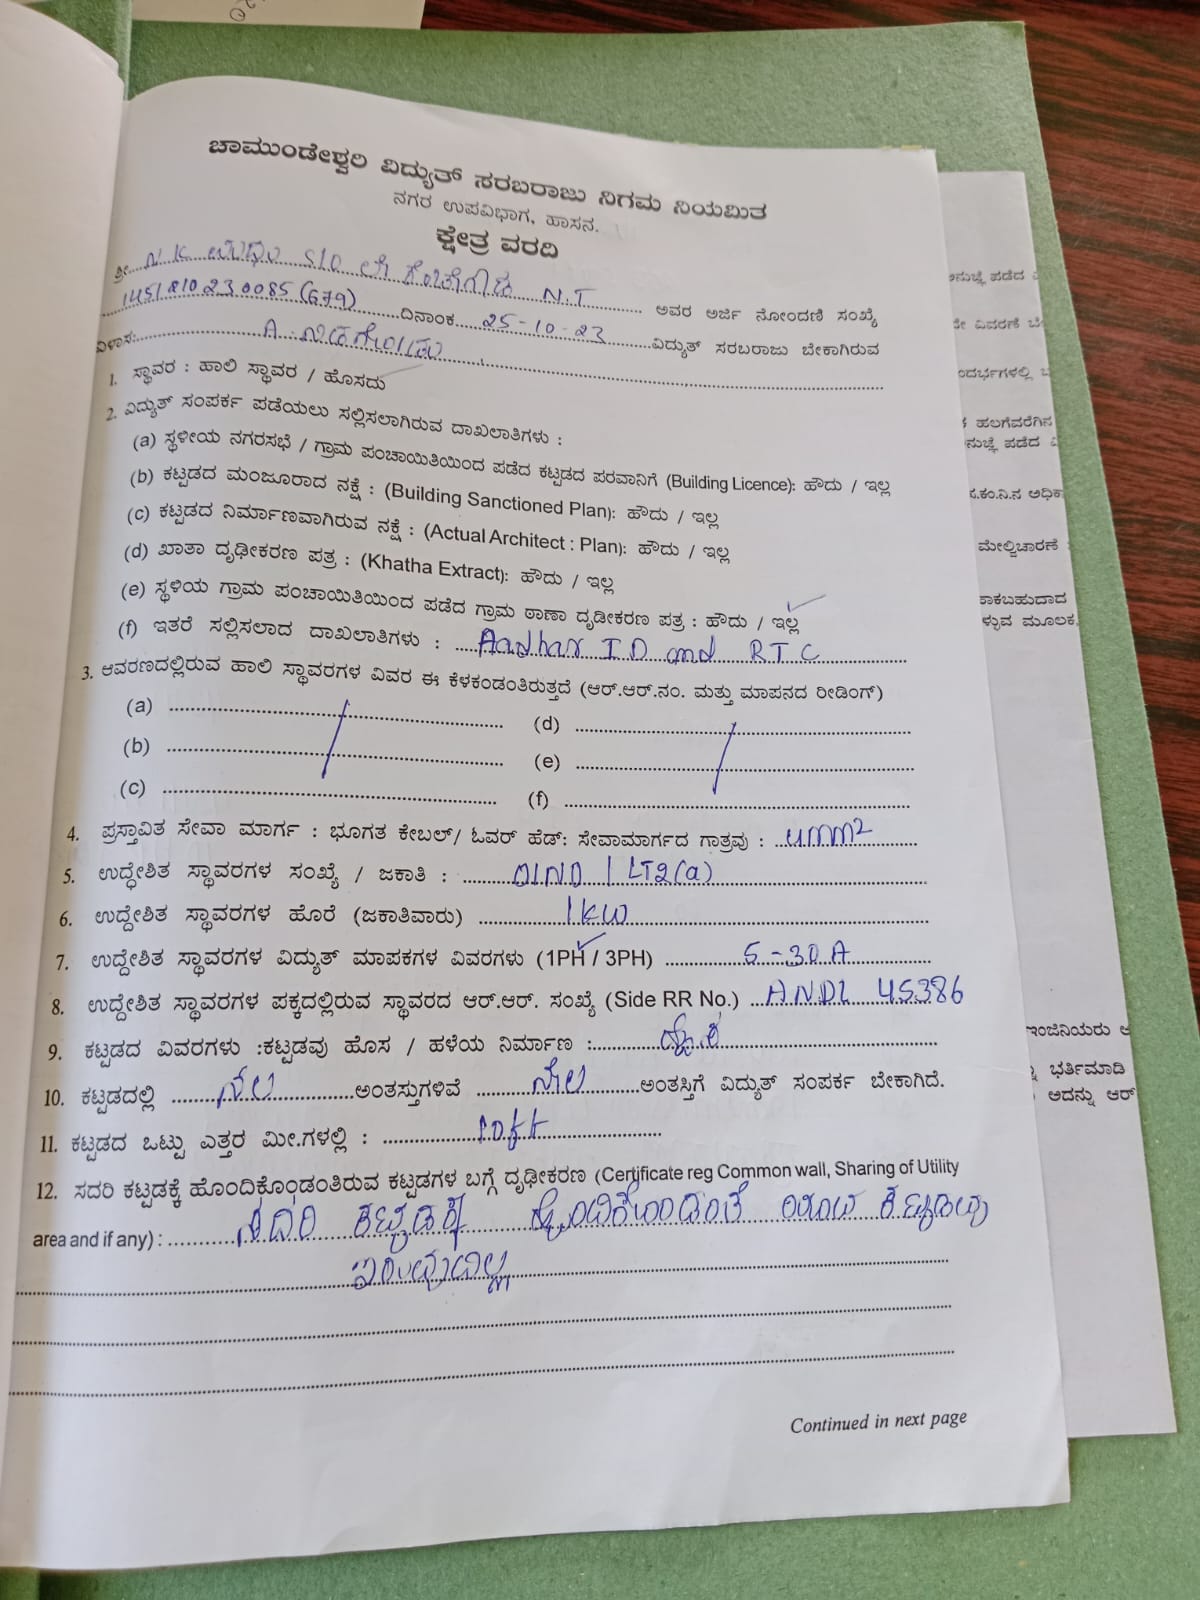 ಚಾಮುಂಡೇಶ್ವರಿ ವಿದ್ಯುತ್ ಸರಬರಾಜು ನಿಗಮ ನಿಯಮಿತ
ನಗರ ಉಪವಿಭಾಗ, ಹಾಸನ.
ಕ್ಷೇತ್ರ ವರದಿ
ಶ್ರೀ... N K S/O ಲೇ N.T ಅವರ ಅರ್ಜಿ ನೋಂದಣಿ ಸಂಖ್ಯೆ
ದಿನಾಂಕ... 25-10-23 ...ವಿದ್ಯುತ್ ಸರಬರಾಜು ಬೇಕಾಗಿರುವ
ವಿಳಾಸ:... A.
1. ಸ್ಥಾವರ : ಹಾಲಿ ಸ್ಥಾವರ / ಹೊಸದು
2. ವಿದ್ಯುತ್ ಸಂಪರ್ಕ ಪಡೆಯಲು ಸಲ್ಲಿಸಲಾಗಿರುವ ದಾಖಲಾತಿಗಳು :
(a) ಸ್ಥಳೀಯ ನಗರಸಭೆ / ಗ್ರಾಮ ಪಂಚಾಯಿತಿಯಿಂದ ಪಡೆದ ಕಟ್ಟಡದ ಪರವಾನಿಗೆ (Building Licence): ಹೌದು / ಇಲ್ಲ
(b) ಕಟ್ಟಡದ ಮಂಜೂರಾದ ನಕ್ಷೆ : (Building Sanctioned Plan): ಹೌದು / ಇಲ್ಲ
(c) ಕಟ್ಟಡದ ನಿರ್ಮಾಣವಾಗಿರುವ ನಕ್ಷೆ : (Actual Architect : Plan): ಹೌದು / ಇಲ್ಲ
(d) ಖಾತಾ ದೃಢೀಕರಣ ಪತ್ರ : (Khatha Extract): ಹೌದು / ಇಲ್ಲ
(e) ಸ್ಥಳಿಯ ಗ್ರಾಮ ಪಂಚಾಯಿತಿಯಿಂದ ಪಡೆದ ಗ್ರಾಮ ಠಾಣಾ ದೃಡೀಕರಣ ಪತ್ರ : ಹೌದು / ಇಲ್ಲ
(f) ಇತರೆ ಸಲ್ಲಿಸಲಾದ ದಾಖಲಾತಿಗಳು : Aadhar ID and RTC
3. ಆವರಣದಲ್ಲಿರುವ ಹಾಲಿ ಸ್ಥಾವರಗಳ ವಿವರ ಈ ಕೆಳಕಂಡಂತಿರುತ್ತದೆ (ಆರ್.ಆರ್.ನಂ. ಮತ್ತು ಮಾಪನದ ರೀಡಿಂಗ್)
(a) (d)
(b) (e)
(c) (f)
4. ಪ್ರಸ್ತಾವಿತ ಸೇವಾ ಮಾರ್ಗ : ಭೂಗತ ಕೇಬಲ್/ ಓವರ್ ಹೆಡ್: ಸೇವಾಮಾರ್ಗದ ಗಾತ್ರವು : 4mm²
5. ಉದ್ಧೇಶಿತ ಸ್ಥಾವರಗಳ ಸಂಖ್ಯೆ / ಜಕಾತಿ : 01NO / LT2(a)
6. ಉದ್ದೇಶಿತ ಸ್ಥಾವರಗಳ ಹೊರೆ (ಜಕಾತಿವಾರು) 1KW
7. ಉದ್ದೇಶಿತ ಸ್ಥಾವರಗಳ ವಿದ್ಯುತ್ ಮಾಪಕಗಳ ವಿವರಗಳು (1PH / 3PH) 5-30A
8. ಉದ್ದೇಶಿತ ಸ್ಥಾವರಗಳ ಪಕ್ಕದಲ್ಲಿರುವ ಸ್ಥಾವರದ ಆರ್.ಆರ್. ಸಂಖ್ಯೆ (Side RR No.) ANDL 45386
9. ಕಟ್ಟಡದ ವಿವರಗಳು :ಕಟ್ಟಡವು ಹೊಸ / ಹಳೆಯ ನಿರ್ಮಾಣ :
10. ಕಟ್ಟಡದಲ್ಲಿ ನೆಲ ಅಂತಸ್ತುಗಳಿವೆ ನೆಲ ಅಂತಸ್ತಿಗೆ ವಿದ್ಯುತ್ ಸಂಪರ್ಕ ಬೇಕಾಗಿದೆ.
11. ಕಟ್ಟಡದ ಒಟ್ಟು ಎತ್ತರ ಮೀ.ಗಳಲ್ಲಿ : 10ft
12. ಸದರಿ ಕಟ್ಟಡಕ್ಕೆ ಹೊಂದಿಕೊಂಡಂತಿರುವ ಕಟ್ಟಡಗಳ ಬಗ್ಗೆ ದೃಢೀಕರಣ (Certificate reg Common wall, Sharing of Utility
area and if any) : ಸದರಿ ಕಟ್ಟಡಕ್ಕೆ ಹೊಂದಿಕೊಂಡಂತೆ ಯಾವ ಕಟ್ಟಡವು
ಇರುವುದಿಲ್ಲ
Continued in next page
ಮೇಲ್ವಿಚಾರಣೆ
ಇಂಜಿನಿಯರು
ಭರ್ತಿಮಾಡಿ
ಅದನ್ನು ಆರ್